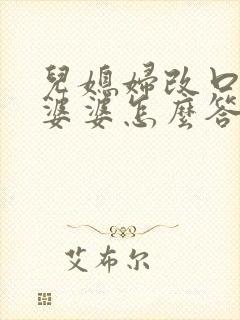 兒媳婦改口
婆婆怎麼答
艾布尔